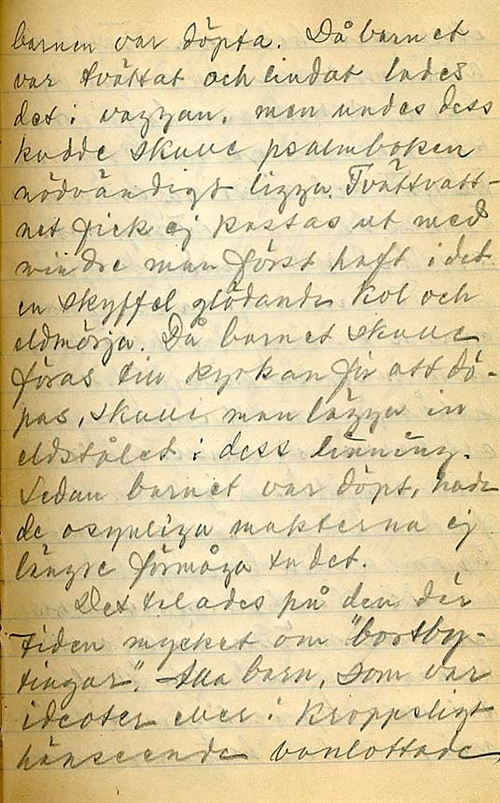 barnen var döpta. Då barnet
var tvättat och lindat lades
det i vaggan, men under dess
kudde skulle psalmboken
nödvändigt ligga. Tvättvatt-
net fick ej kastas ut med
mindre man först haft i det
en skyffel glödande kol och
eldmörja. Då barnet skulle
föras till kyrkan för att dö-
pas, skulle man lägga in
eldstålet i dess linning.
Sedan barnet var döpt, hade
de osynliga makterna ej
längre förmåga ta det.
Det talades på den där
tiden mycket om "bortby-
tingar". Alla barn, som var
idioter eller i kroppsligt
hänseende vanlottade,